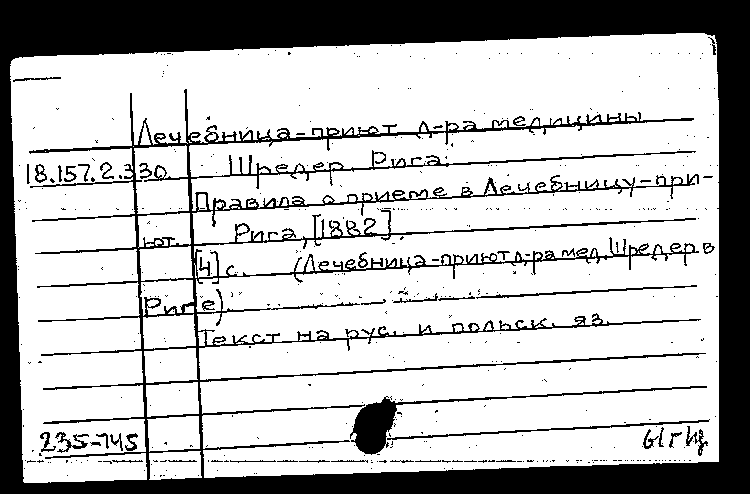 Лечебница-приют д-ра медицины
18.157.2.330 Шредер. Рига.
Правила о приеме в Лечебницу-при-
ют. Рига, [1882].
[4] с. (Лечебница-приют д-ра мед. Шредер в
Риге)
Текст на рус. и польск. яз.
235-745